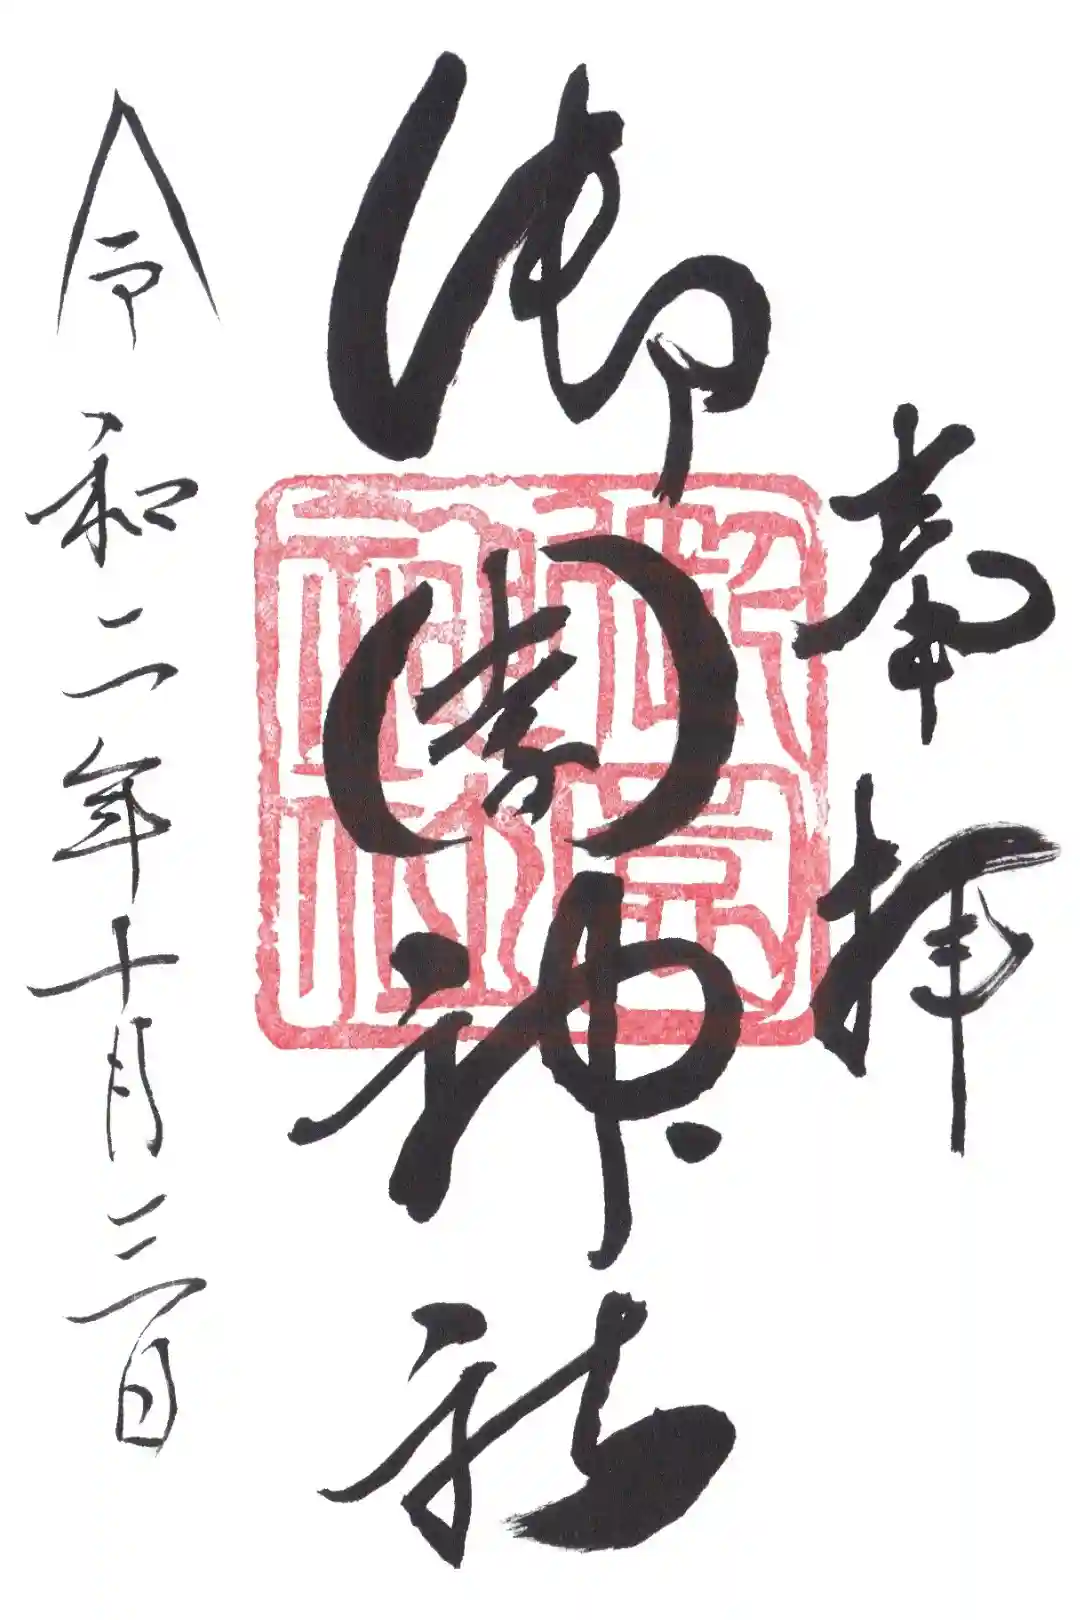 奉拝
御園神社
御園
神社
令和二年十月三日